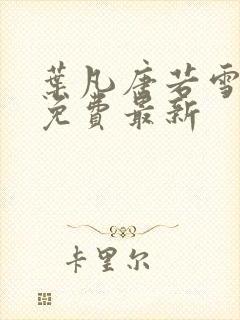 葉凡唐若雪
免費最新
卡里尔